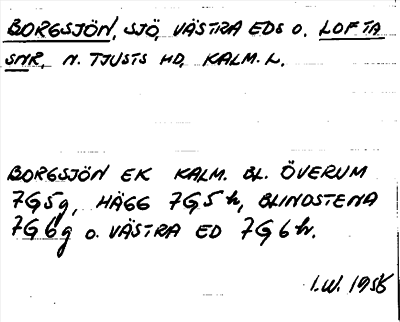 BORGSJÖN, SJÖ, VÄSTRA EDS O. LOFTA
SNR, N. TJUSTS HD, KALM. L.
BORGSJÖN EK KALM. BL. ÖVERUM
7G5g, HÄGG 7G5h, BLINDSTENA
7G6g O. VÄSTRA ED 7G6h.
I.W. 1958